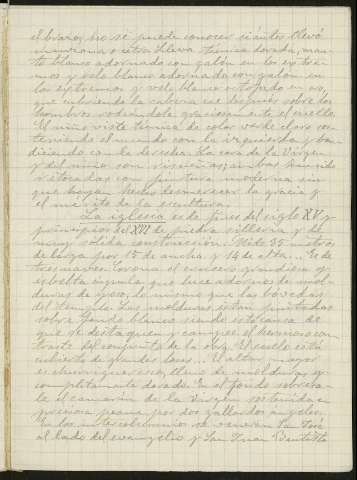 el brazo, no se puede conocer si antes llevó
corona u otra. Lleva túnica dorada, man-
to blanco adornado con galón en los extre-
mos y velo blanco adornado con galón en
los extremos y velo blanco
que cubriendo la cabeza cae después sobre los
hombros rodeándole graciosamente el cuello.
El niño viste túnica de color verde claro sos-
teniendo el mundo con la izquierda y ben-
diciendo con la derecha. Las caras de la Virgen
y del niño son risueñas, ambas han sido
retocadas con pintura moderna sin
que hayan hecho desmerecer la gracia y
el mérito de la escultura.
La iglesia es de fines del siglo XV y
principios del XVI de piedra sillería y de
muy sólida construcción. Mide 35 metros
de larga por 15 de ancha y 14 de alta... Es de
tres naves. Corona el crucero grandiosa y
esbelta cúpula que luce adornos de mol-
duras de yeso, lo mismo que las bóvedas
del templo. Las molduras están pintadas
sobre fondo blanco siendo esto causa de
que se destaquen y campee el hermoso con-
traste del conjunto de la obra. El suelo está
cubierto de grandes losas... El altar mayor
es churrigueresco, lleno de molduras y
completamente dorado. En el fondo sobresa-
le el camarín de la Virgen sostenida en
preciosa peana por dos gallardos ángeles.
En los intercolumnios se veneran San José
al lado del evangelio y San Juan Bautista